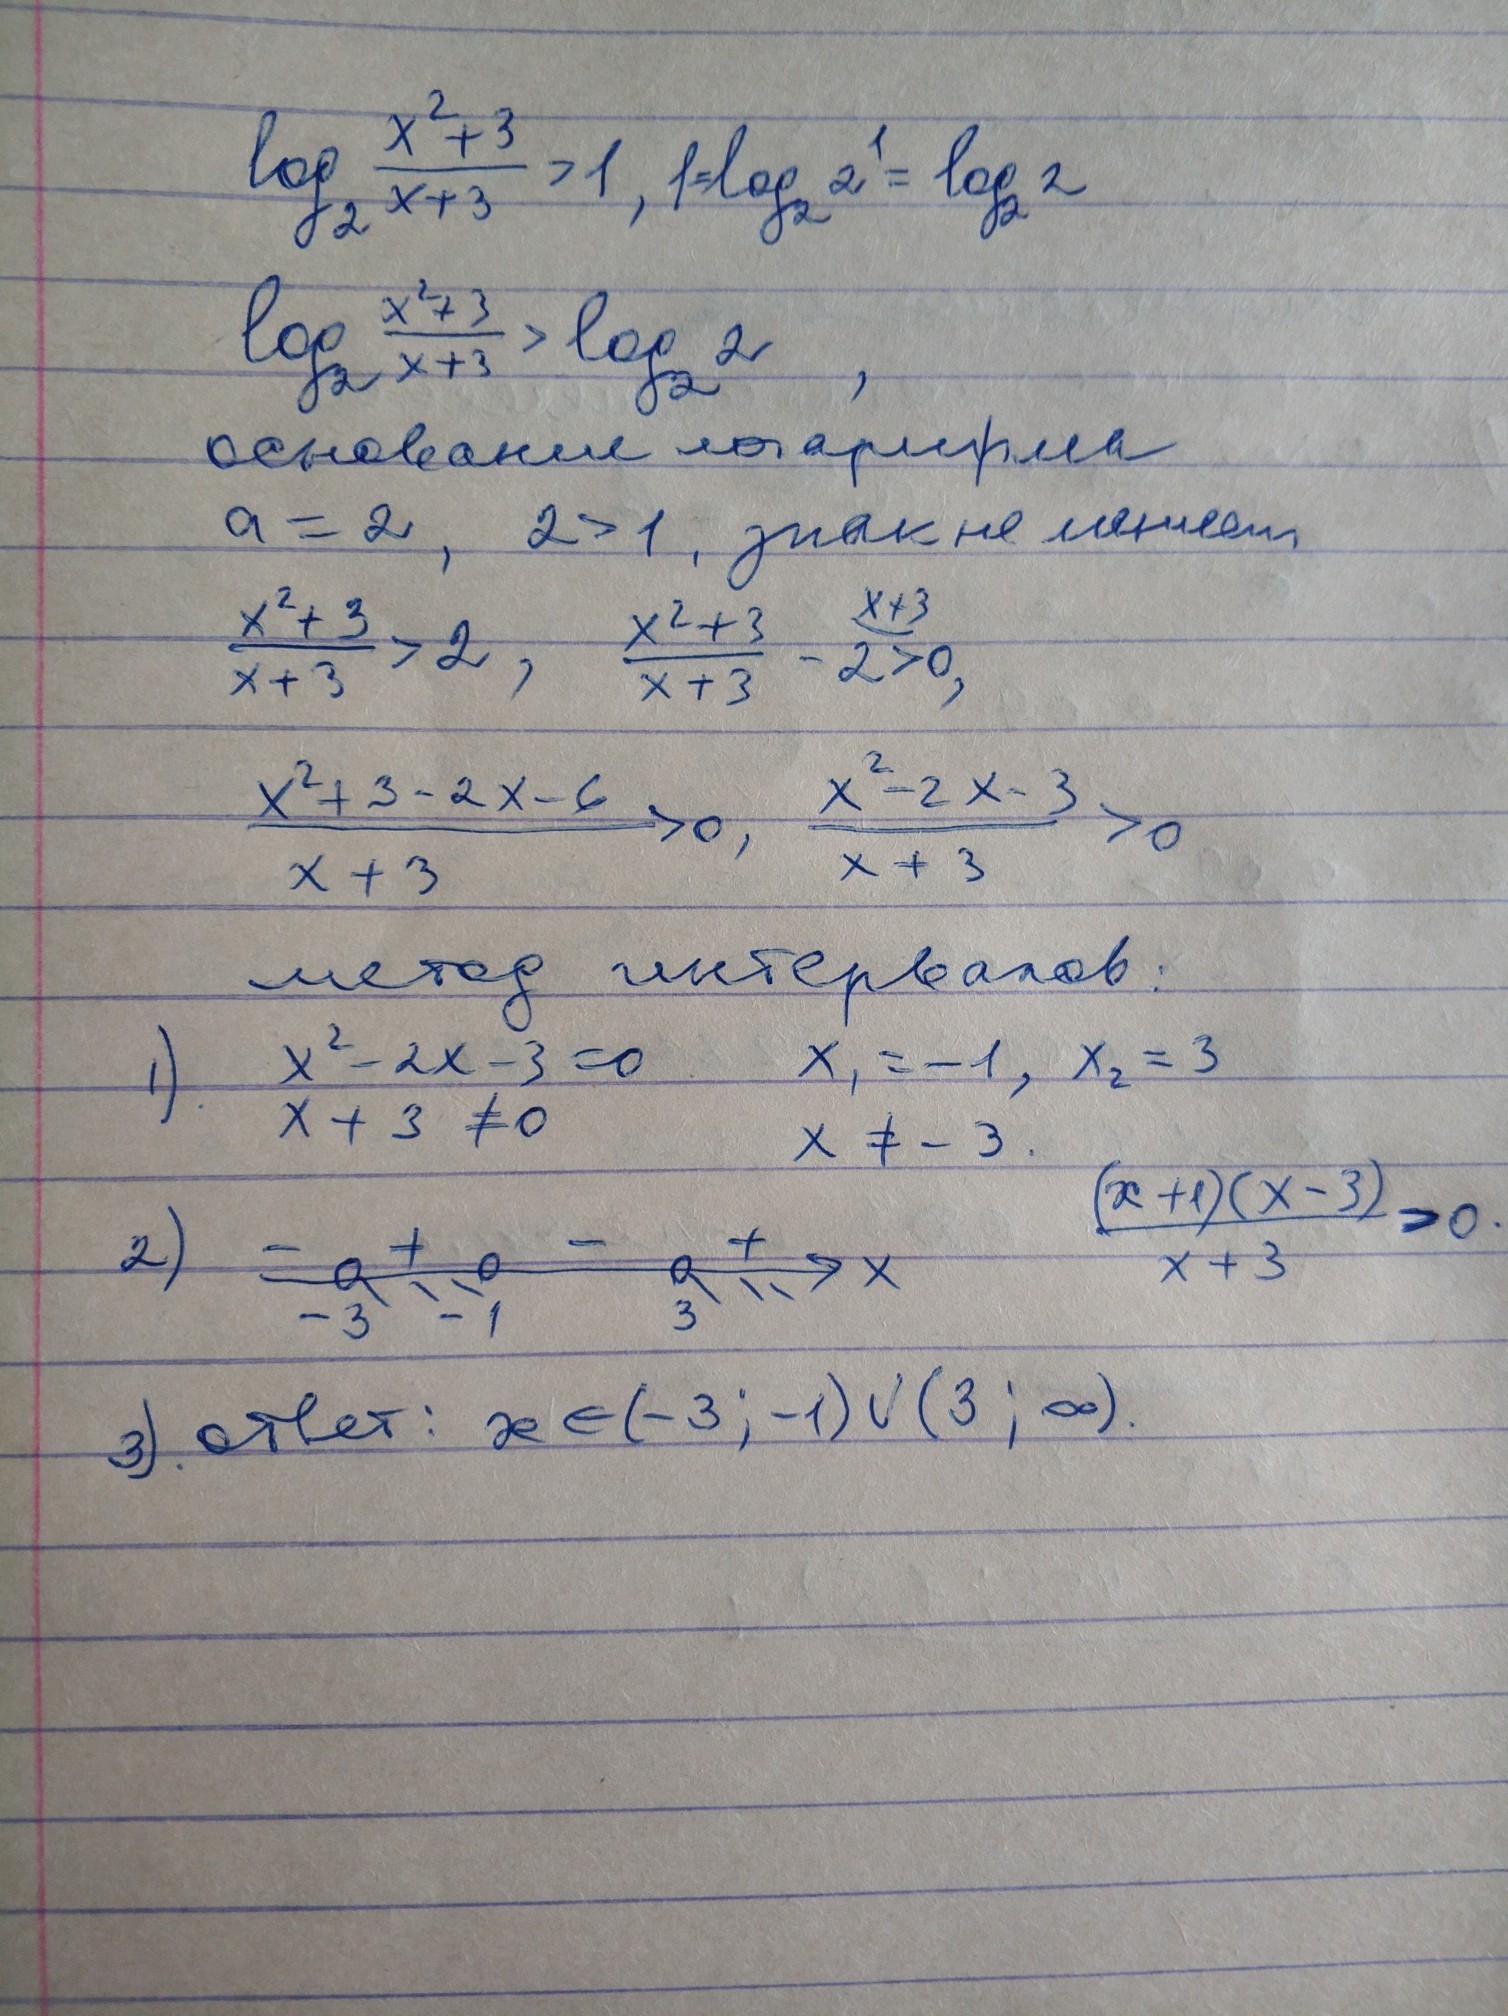 log₂ (x²+3)/(x+3) > 1, 1=log₂ 2¹ = log₂ 2
log₂ (x²+3)/(x+3) > log₂ 2 ,
основание логарифма
a = 2, 2 > 1, знак не меняем
(x²+3)/(x+3) > 2, (x²+3)/(x+3) - 2 > 0, x+3
(x²+3-2x-6)/(x+3) > 0, (x²-2x-3)/(x+3) > 0
метод интервалов:
1). x²-2x-3=0 x₁ = -1, x₂ = 3
x+3 ≠ 0 x ≠ -3.
((x+1)(x-3))/(x+3) > 0.
2) - + - + x
-3 -1 3
3). ответ: x ∈ (-3; -1) ∪ (3; ∞).